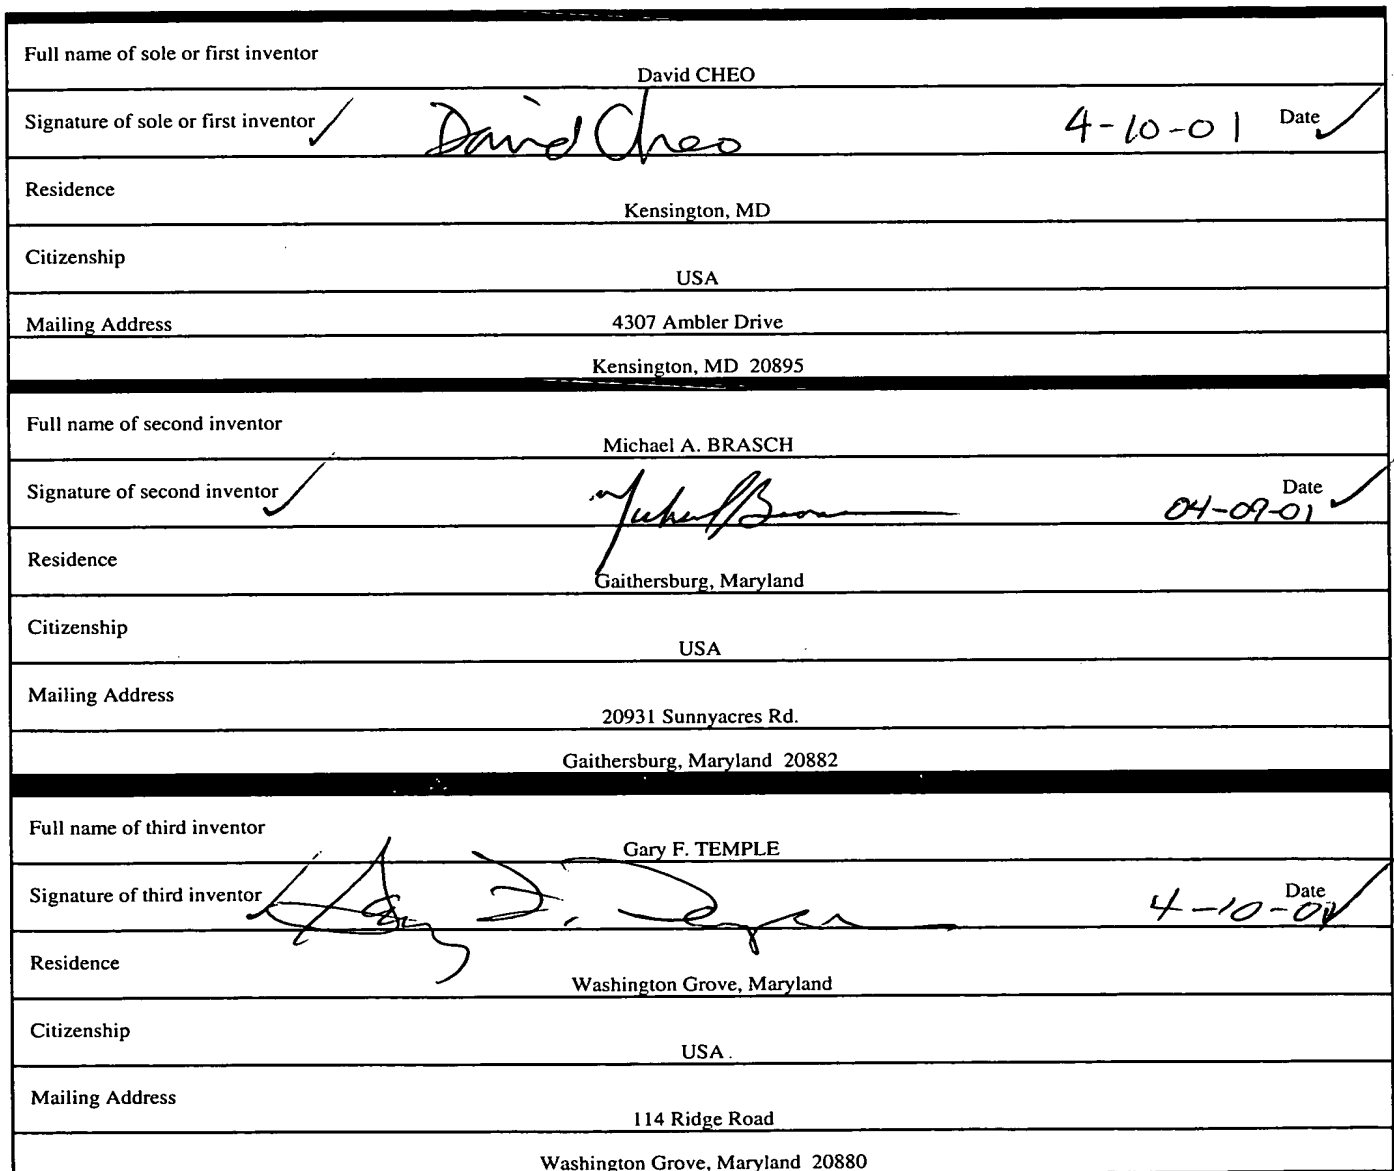 Full name of sole or first inventor
David CHEO
Signature of sole or first inventor David Cheo 4-10-01 Date
Residence
Kensington, MD
Citizenship
USA
Mailing Address 4307 Ambler Drive
Kensington, MD 20895
Full name of second inventor
Michael A. BRASCH
Signature of second inventor 04-09-01 Date
Residence
Gaithersburg, Maryland
Citizenship
USA
Mailing Address
20931 Sunnyacres Rd.
Gaithersburg, Maryland 20882
Full name of third inventor
Gary F. TEMPLE
Signature of third inventor Gary F. 4-10-01 Date
Residence
Washington Grove, Maryland
Citizenship
USA
Mailing Address
114 Ridge Road
Washington Grove, Maryland 20880